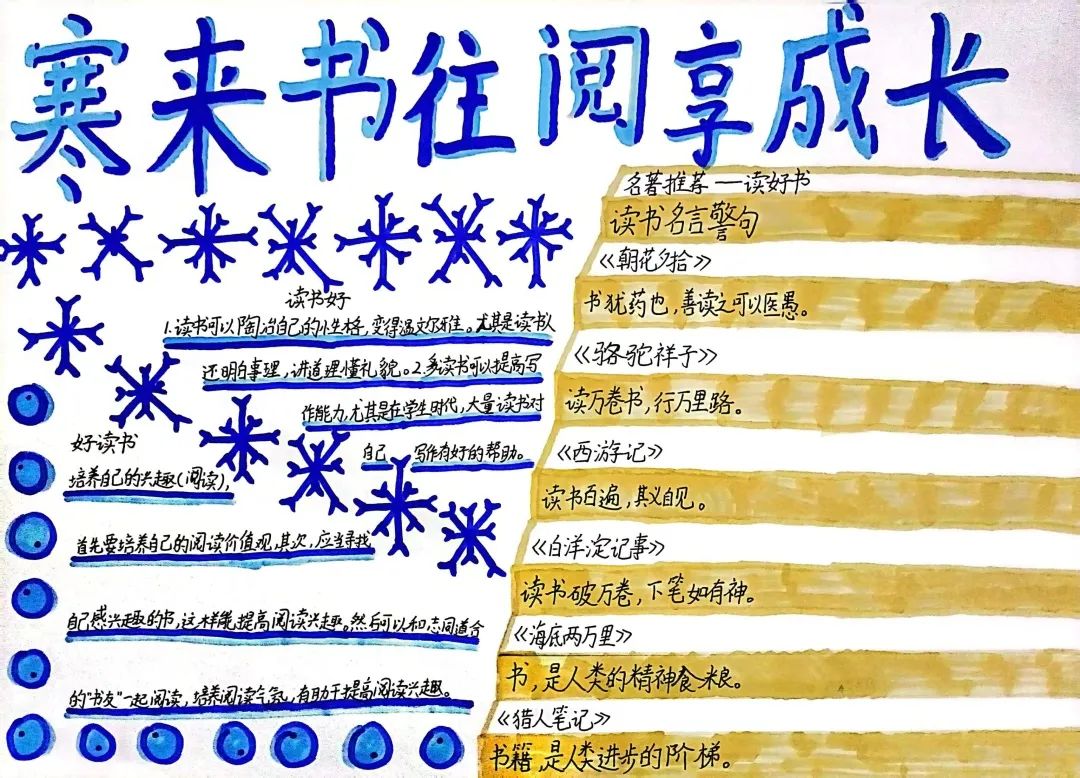 寒来书往阅享成长
读书好
1.读书可以陶冶自己的性格,变得温文尔雅。尤其是读书人
还明白事理,讲道理懂礼貌。2.多读书可以提高写
作能力,尤其是在学生时代,大量读书对
自己 写作有好的帮助。
好读书
培养自己的兴趣(阅读),
首先要培养自己的阅读价值观,其次,应当寻找
自己感兴趣的书,这样能提高阅读兴趣。然后可以和志同道合
的“书友”一起阅读,培养阅读气氛,有助于提高阅读兴趣。
名著推荐——读好书
读书名言警句
《朝花夕拾》
书犹药也,善读之可以医愚。
《骆驼祥子》
读万卷书,行万里路。
《西游记》
读书百遍,其义自见。
《白洋淀记事》
读书破万卷,下笔如有神。
《海底两万里》
书,是人类的精神食粮。
《猎人笔记》
书籍,是人类进步的阶梯。